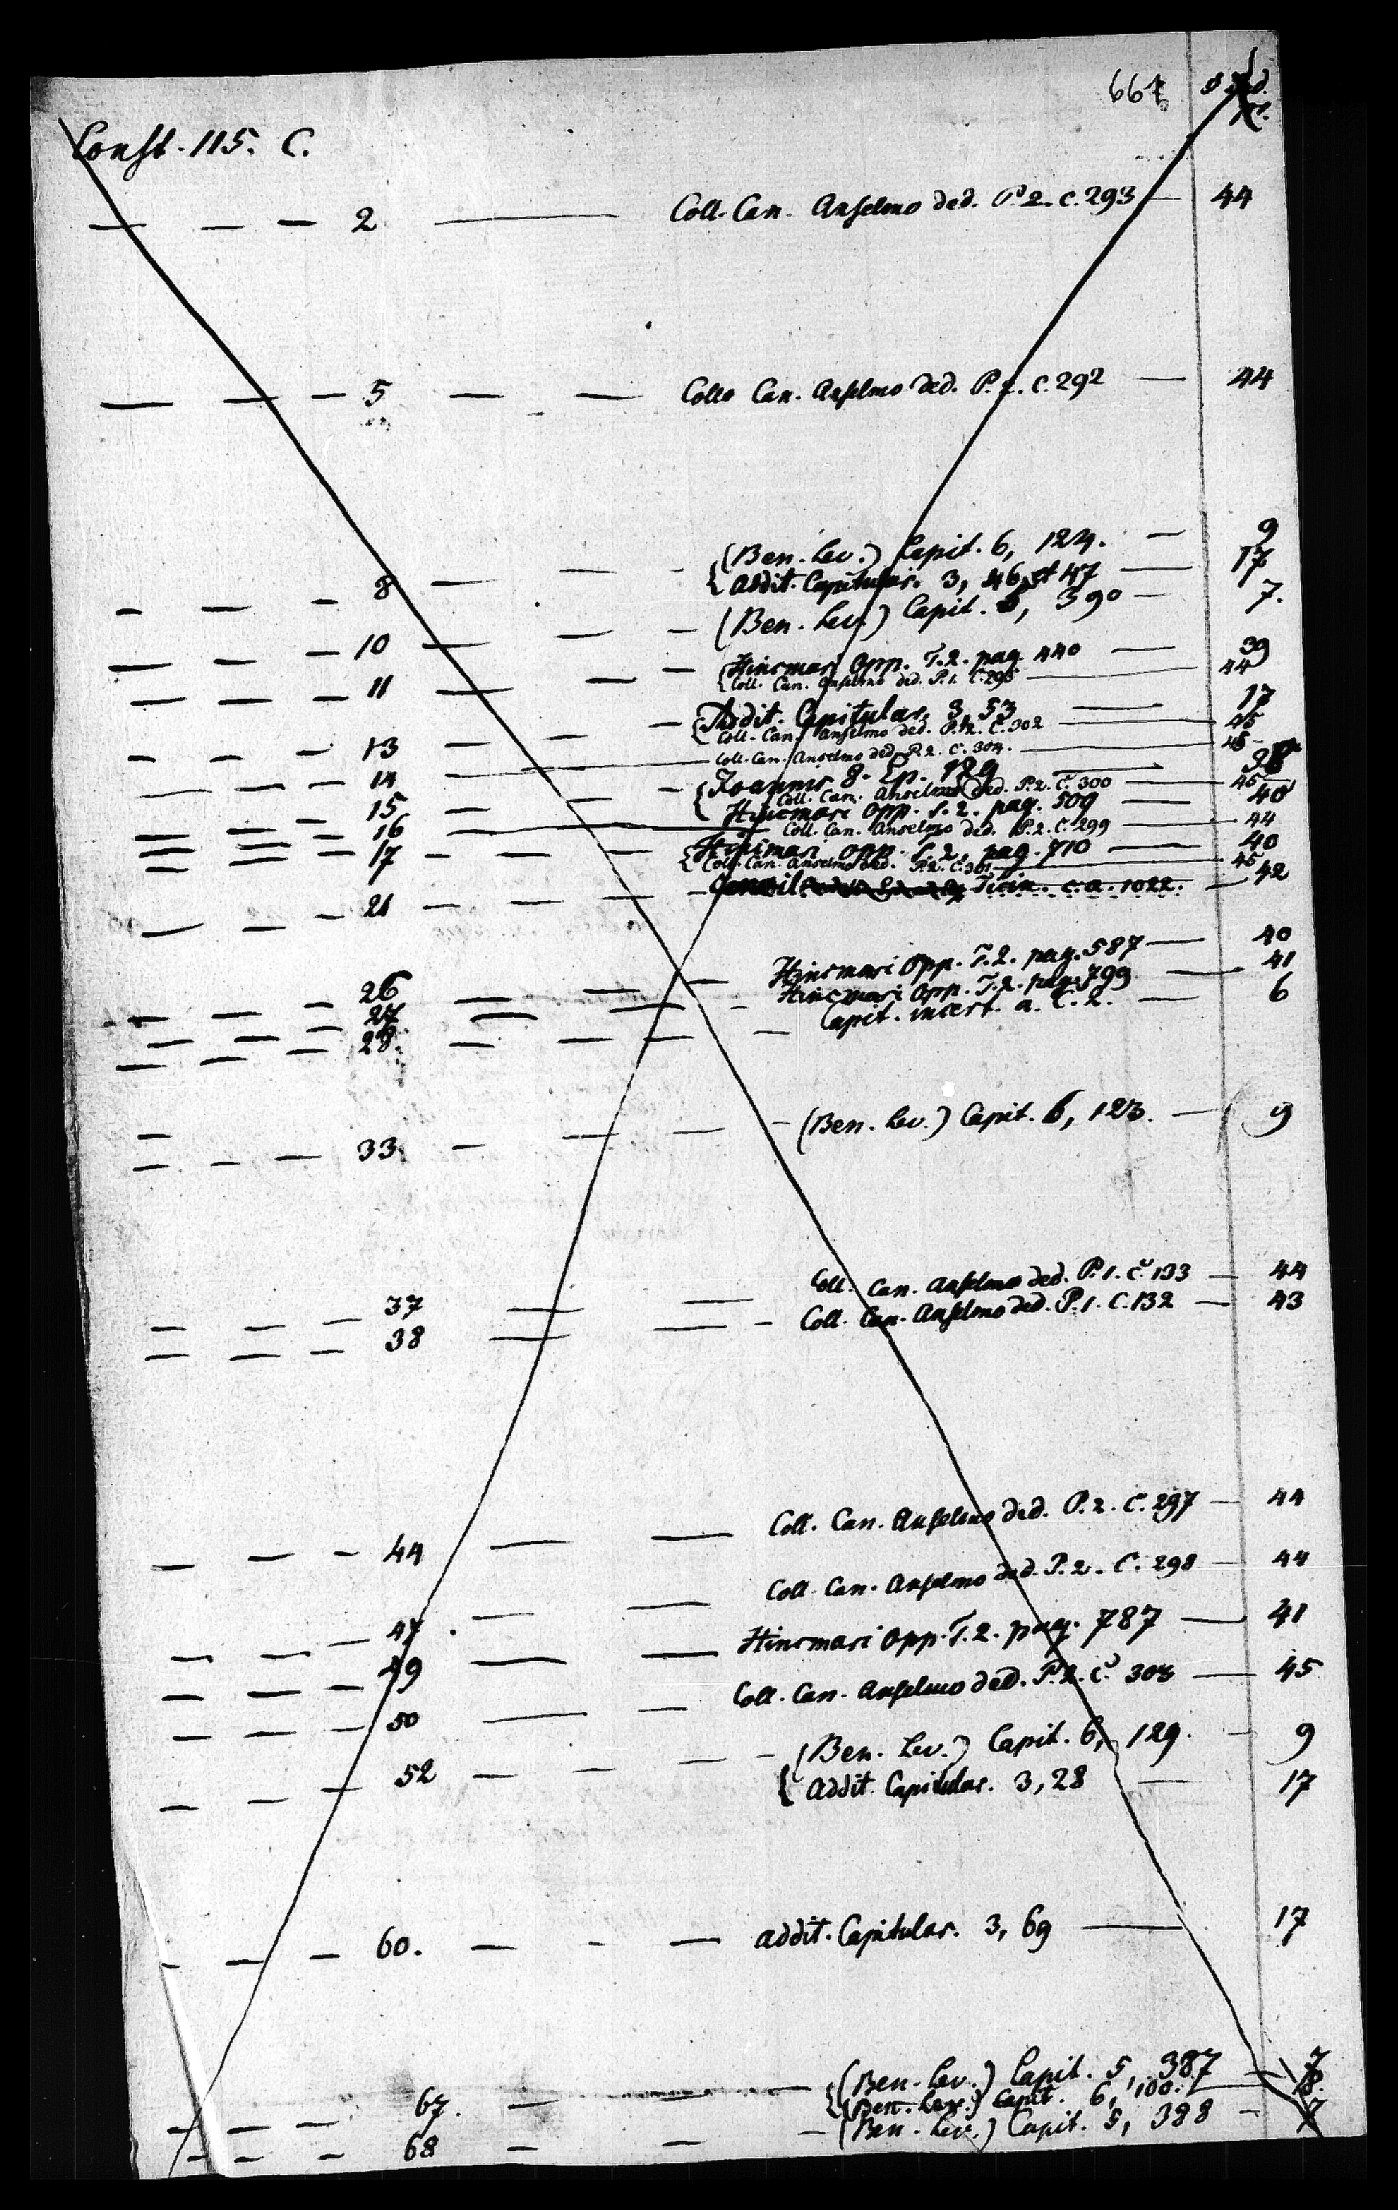 Const. 115. C.
— — — 2 — Coll. Can. Anselmo ded. P. 2. c. 293 — 44
— — — 5 — — Coll. Can. Anselmo ded. P. 2. c. 292 — 44
— — — 8 — — — { (Ben. Lev.) Capit. 6, 124. — 9
Addit. Capitular. 3, 46 et 47 — 17
— — — 10 — — — (Ben. Lev.) Capit. 5, 390 — 7.
— — — 11 — — — { Hincmari Opp. T. 2. pag. 440 — 39
Coll. Can. Anselmo ded. P. 1. C. 295 — 44
— — — 13 — — — { Addit. Capitular. 3, 53 — 17
Coll. Can. Anselmo ded. P. 2. C. 302 — 45
— — — 14 — Coll. Can. Anselmo ded. P. 2. C. 304. — 45
— — — 15 — — — { Joannis 8. Ep. 189 —
Coll. Can. Anselmo ded. P. 2. C. 300 — 45
Hincmari Opp. T. 2. pag. 509 — 40
— — — 16 — Coll. Can. Anselmo ded. P. 2. C. 299 — 44
— — — 17 — { Hincmari Opp. T. 2. pag. 710 — 40
Coll. Can. Anselmo ded. P. 2. C. 301 — 45
— — — 21 — — — Concil. Ticin. c. a. 1022. — 42
— — — 26 — — — Hincmari Opp. T. 2. pag. 587 — 40
— — — 27 — — — Hincmari Opp. T. 2. pag. 799 — 41
— — — 28. — — — Capit. incert. a. C. 2. — 6
— — — 33. — — — (Ben. Lev.) Capit. 6, 123. — 9
— — — 37 — — Coll. Can. Anselmo ded. P. 1. C. 133 — 44
— — — 38 — — — Coll. Can. Anselmo ded. P. 1. C. 132 — 43
— — — 44 — — Coll. Can. Anselmo ded. P. 2. C. 297 — 44
— — — 47 — — Coll. Can. Anselmo ded. P. 2. C. 298 — 44
— — — 49 — — Hincmari Opp. T. 2. pag. 787 — 41
— — — 50 — — Coll. Can. Anselmo ded. P. 2. C. 303 — 45
— — 52 — — — { (Ben. Lev.) Capit. 6, 129. — 9
Addit. Capitular. 3, 28 — 17
— — — 60. — — — Addit. Capitular. 3, 69 — 17
— — — 67. — — — { (Ben. Lev.) Capit. 5, 387 — 7
(Ben. Lev.) Capit. 6, 100. — 8.
— — — 68 — — — (Ben. Lev.) Capit. 5, 388 — 7